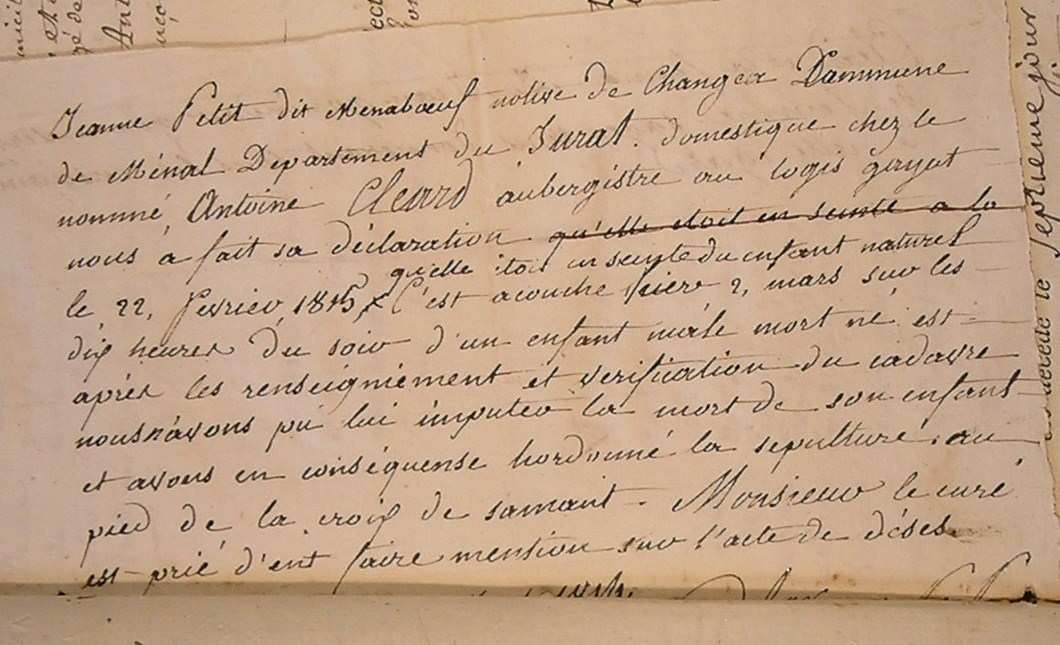 Jeanne Petit dit Menabœuf nolive de Changea Dammune
de Ménal Departement du Jurat. domestique chez le
nommé Antoine Cleard aubergistre au logis guyot
nous à fait sa déclaration qu'elle etoit en seinte a la
le 22, fevrier, 1815, x qu'elle étoit en seinte du enfant naturel
C'est acouché hier 2, mars sur les
dix heures du soir d'un enfant mâle mort né est
après les renseigniement et verification du cadavre
nous n'avons pu lui imputer la mort de son enfant
et avons en conséquense hordonné la sepulture, au
pied de la croix de samant. Monsieur le curé
est prié d'ent faire mension sur l'acte de déses.
septieme jour